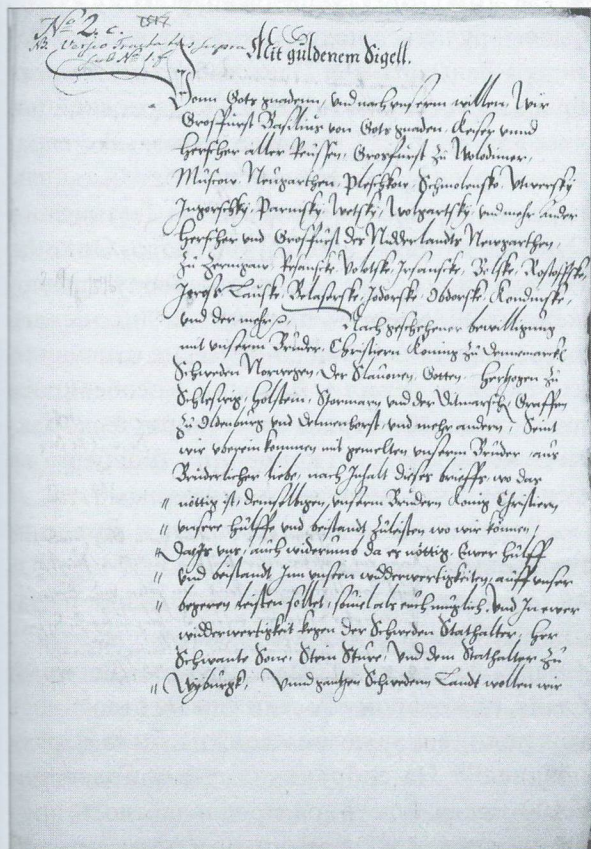 No 2. c. 1517
Mit guldenem Sigell.
Vonn Gots gnadenn, vnd nach vnserem willen, Wir
Grosfurst Basilius von Gots gnaden, Keiser vnnd
Herscher aller Reussen, Grosfurst zu Wolodimer,
Muscow, Neugarthen, Pleschkow, Schmolensko, Vtwersky
Jugorschky, Permsky, Wetsky, Wolgartsky, vnd mehr ander
Herscher vnd Grosfurst des Nidderlandts Newgarthen,
zu Zernigaw, Resanske, Volotske, Rsefanske, Belske, Rostoffske
Jarosslauske, Belaserske, Vdorske, Obdorske, Kondinske,
vnd der mehr. Nach geschehener bewilligung
mit vnserem Bruder, Christiern Koning zu Dennemarck
Schweden Norwegen, der Slauonen, Gotten, Hertzogen zu
Schleswig, Holstein, Stormarn vnd der Ditmarschen, Graffen
zu Oldenburg vnd Delmenhorst, vnd mehr andern, Seint
wir vberein kommen mit gemelten vnserm Bruder, aus
Bruderlicher liebe, nach Inhalt dieses brieffs, wo das
nöttig ist, demselbigen vnserm Brudern König Christiern,
vnsere hülffe vnd beistandt zuleisten wo wir können,
Das yr vns, auch widerumb da es nöttig, Ewer hülff
vnd beistandt Inn vnseren widderwertigkeiten, auff vnser
begeren leisten sollet, souiel als euch müglich. Vnd In ewer
widderwertigkeit kegen der Schweden Stathalter, Her
Schwante Sone, Sten Sture, Vnd dem Stathalter zu
Wyburgk, Vnnd gantzen Schwedenn Landt wollen wir